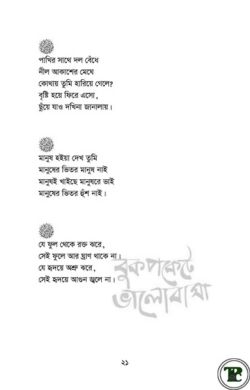 পাখির সাথে দল বেঁধে
নীল আকাশের মেঘে
কোথায় তুমি হারিয়ে গেলে?
বৃষ্টি হয়ে ফিরে এসো,
ছুঁয়ে যাও দখিনা জানালায়।
মানুষ হইয়া দেখ তুমি
মানুষের ভিতর মানুষ নাই
মানুষই খাইছে মানুষরে ভাই
মানুষের ভিতর হুঁশ নাই।
যে ফুল থেকে রক্ত ঝরে,
সেই ফুলে আর ঘ্রাণ থাকে না।
যে হৃদয়ে অশ্রু ঝরে,
সেই হৃদয়ে আগুন জ্বলে না।
বুক পকেটে
ভালোবাসা
২১